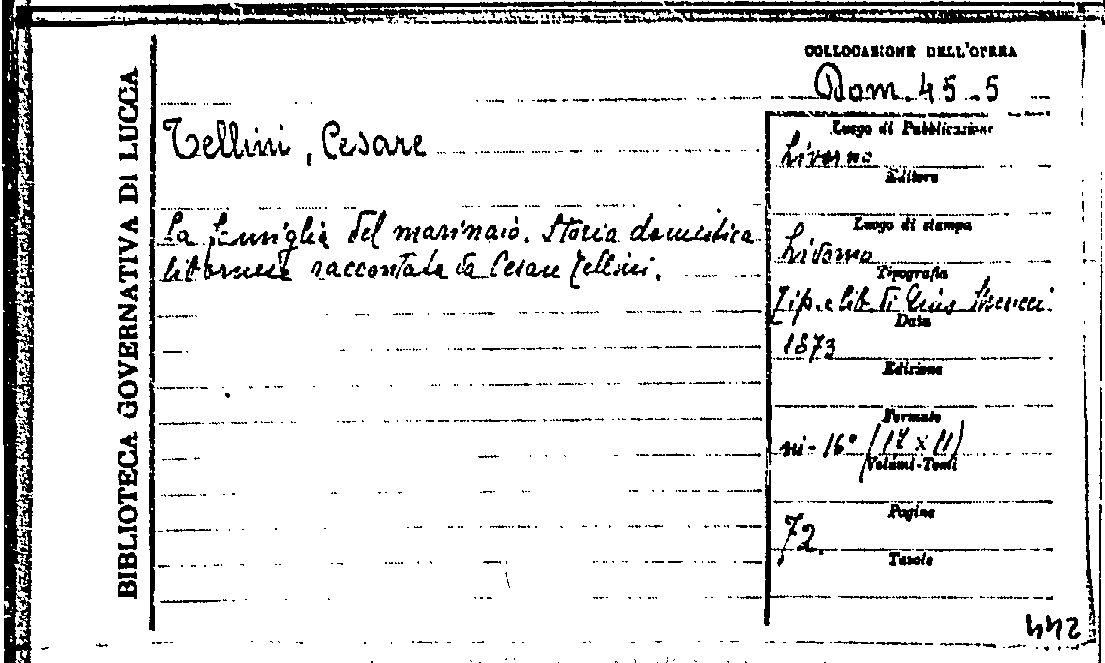 BIBLIOTECA GOVERNATIVA DI LUCCA
COLLOCAZIONE DELL'OPERA
Dom. 45-5
Tellini, Cesare
La famiglia del marinaio. Storia domestica
livornese raccontata da Cesare Tellini.
Luogo di Pubblicazione
Livorno
Editore
Luogo di stampa
Livorno
Tipografia
Tip. e lit. di
Data
1873
Edizione
Formato
in-16° (17 x 11)
Volumi-Tomi
Pagine
72.
Tavole
442